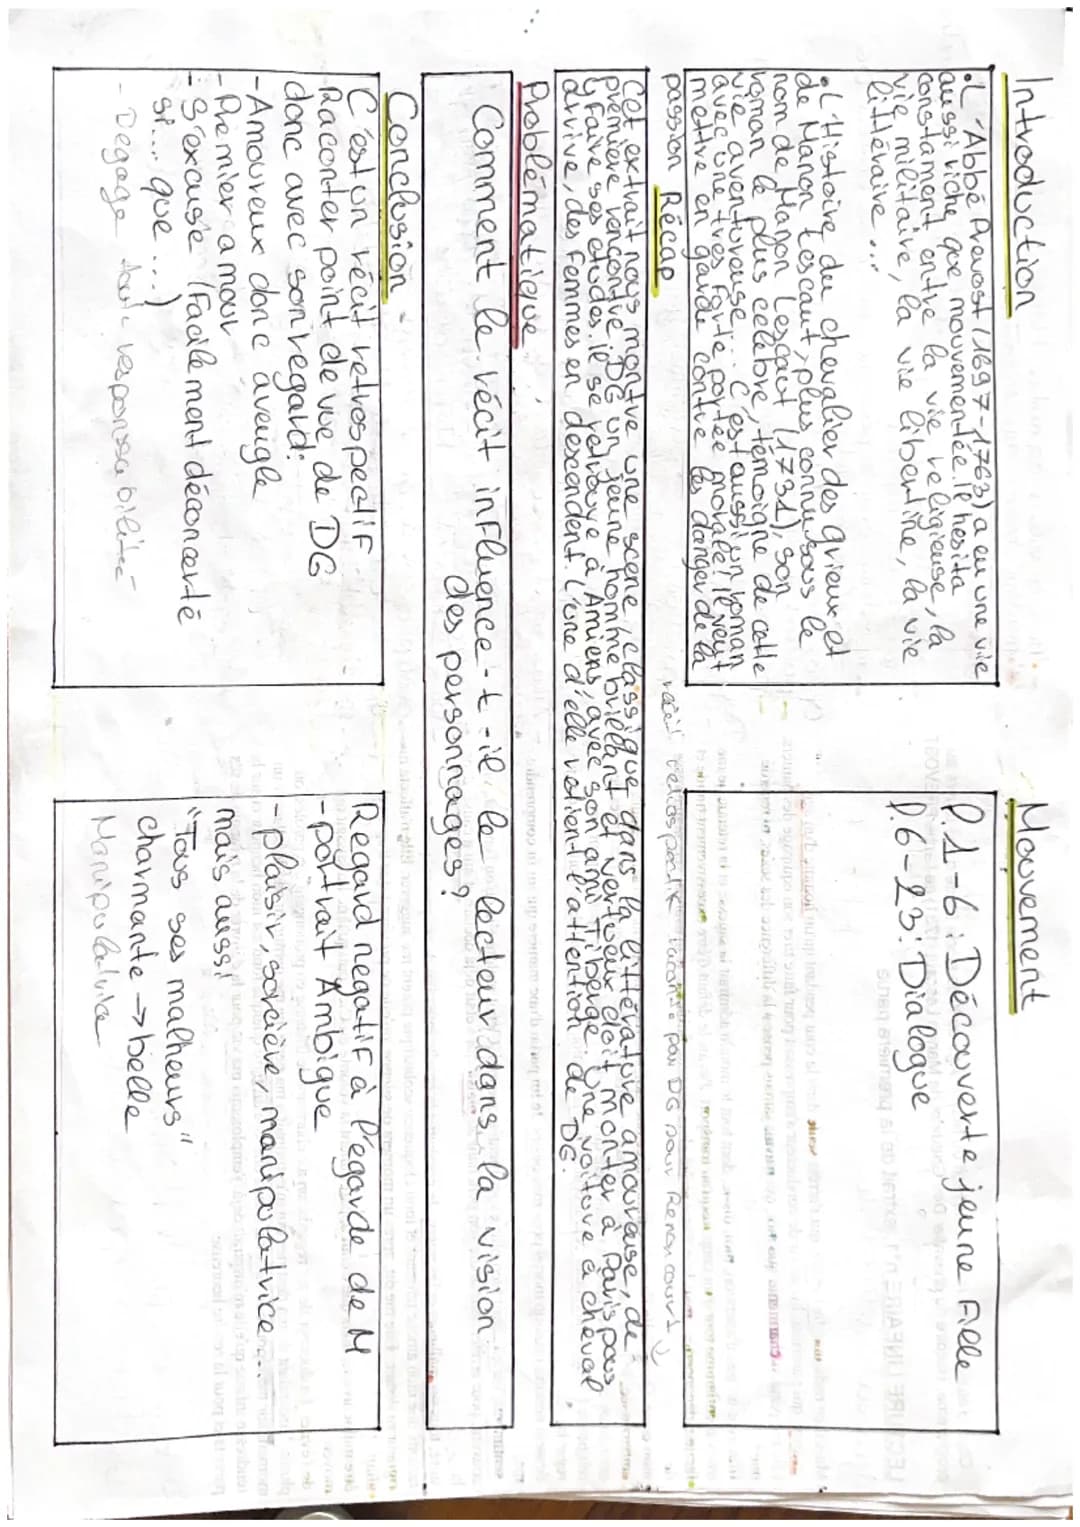 Introduction
• L'Abbé Prevost (1697-1763) a eu une vie
aussi riche que mouvementée. Il hesita
constament entre la vie religieuse, la
vie militaire, la vie libertine, la vie
littéraire...
• L'Histoire du chevalier des Grieux et
de Manon Lescaut, plus connu sous le
nom de Manon Lescaut (1731), son
roman le plus celebre, témoigne de cette
vie aventureuse... C'est aussi un roman
avec une très forte portée morale! Il veut
mettre en garde contre les danger de la
passion
Mouvement
l.1-6: Découverte jeune fille
l.6-23: Dialogue
Récap
récit rétrospectif raconté par DG pour Renoncourt
Cet extrait nous montre une scene classique dans la littérature amoureuse, de
premiere rencontre. DG un jeune homme brillant et vertueux doit monter à Paris pour
y faire ses etudes. Il se retrouve à Amiens, avec son ami Tiberge. Une voiture à cheval
arrive, des femmes en descendent. L'une d'elle retient l'attention de DG.
Problématique
Comment le récit influence-t-il le lecteur dans la vision
des personnages?
Conclusion
C'est un récit retrospectif
Raconter point de vue de DG
donc avec son regard:
- Amoureux donc aveugle
- Premier amour
- S'excuse (Facilement déconcerté
si... que ...)
- Degage toute responsabilité
Regard negatif à l'égarde de M
- portrait Ambigue
- plaisir, sorcière, manipolatrice...
mais aussi
"Tous ses malheurs"
charmante → belle
Manipulatrice